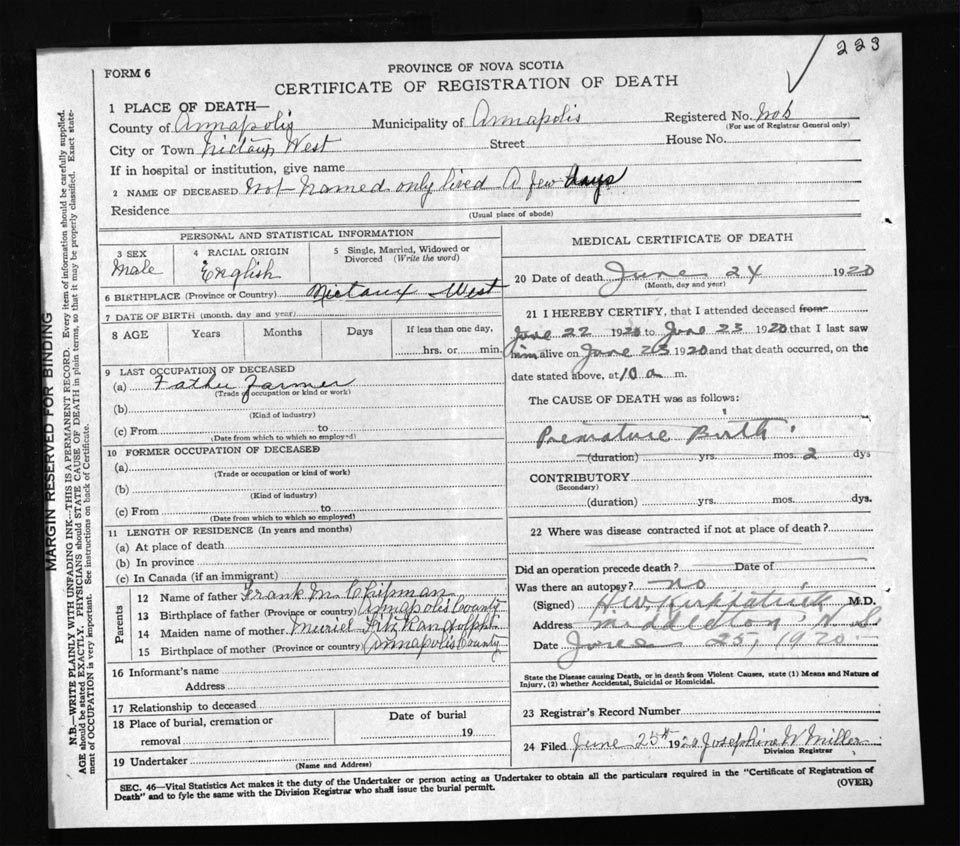 223
PROVINCE OF NOVA SCOTIA
FORM 6
CERTIFICATE OF REGISTRATION OF DEATH
1 PLACE OF DEATH—
County of Annapolis Municipality of Annapolis Registered No.
(For use of Registrar General only)
City or Town Nictaux West Street House No.
If in hospital or institution, give name
2 NAME OF DECEASED Not named only lived A few days
Residence
(Usual place of abode)
PERSONAL AND STATISTICAL INFORMATION
3 SEX 4 RACIAL ORIGIN 5 Single, Married, Widowed or Divorced (Write the word)
Male English
6 BIRTHPLACE (Province or Country) Nictaux West
7 DATE OF BIRTH (month, day and year)
8 AGE Years Months Days If less than one day,
hrs. or min.
9 LAST OCCUPATION OF DECEASED
(a) Father Farmer
(Trade of occupation or kind or work)
(b)
(Kind of industry)
(c) From to
(Date from which to which so employed)
10 FORMER OCCUPATION OF DECEASED
(a)
(Trade or occupation or kind of work)
(b)
(Kind of industry)
(c) From to
(Date from which to which so employed)
11 LENGTH OF RESIDENCE (In years and months)
(a) At place of death
(b) In province
(c) In Canada (if an immigrant)
Parents
12 Name of father Frank M. Chipman
13 Birthplace of father (Province or country) Annapolis County
14 Maiden name of mother Muriel FitzRandolph
15 Birthplace of mother (Province or country) Annapolis County
16 Informant's name
Address
17 Relationship to deceased
18 Place of burial, cremation or removal
Date of burial
19
19 Undertaker
(Name and Address)
MEDICAL CERTIFICATE OF DEATH
20 Date of death June 24 1920
(Month, day and year)
21 I HEREBY CERTIFY, that I attended deceased from
June 22 1920 to June 23 1920 that I last saw
him alive on June 23 1920 and that death occurred, on the
date stated above, at 10 a m.
The CAUSE OF DEATH was as follows:
Premature Birth
(duration) yrs. mos. 2 dys
CONTRIBUTORY
(Secondary)
(duration) yrs. mos. dys.
22 Where was disease contracted if not at place of death?
Did an operation precede death? Date of
Was there an autopsy? no
(Signed) H.W. Kirkpatrick M.D.
Address Middleton N S
Date June 25, 1920
State the Disease causing Death, or in death from Violent Causes, state (1) Means and Nature of
Injury, (2) whether Accidental, Suicidal or Homicidal.
23 Registrar's Record Number
24 Filed June 25th 1920 Josephine W Miller
Division Registrar
SEC. 46—Vital Statistics Act makes it the duty of the Undertaker or person acting as Undertaker to obtain all the particulars required in the "Certificate of Registration of
Death" and to fyle the same with the Division Registrar who shall issue the burial permit.
(OVER)
MARGIN RESERVED FOR BINDING
N.B.—WRITE PLAINLY WITH UNFADING INK—THIS IS A PERMANENT RECORD. Every item of information should be carefully supplied.
AGE should be stated EXACTLY. PHYSICIANS should STATE CAUSE OF DEATH in plain terms, so that it may be properly classified. Exact state-
ment of OCCUPATION is very important. See instructions on back of Certificate.